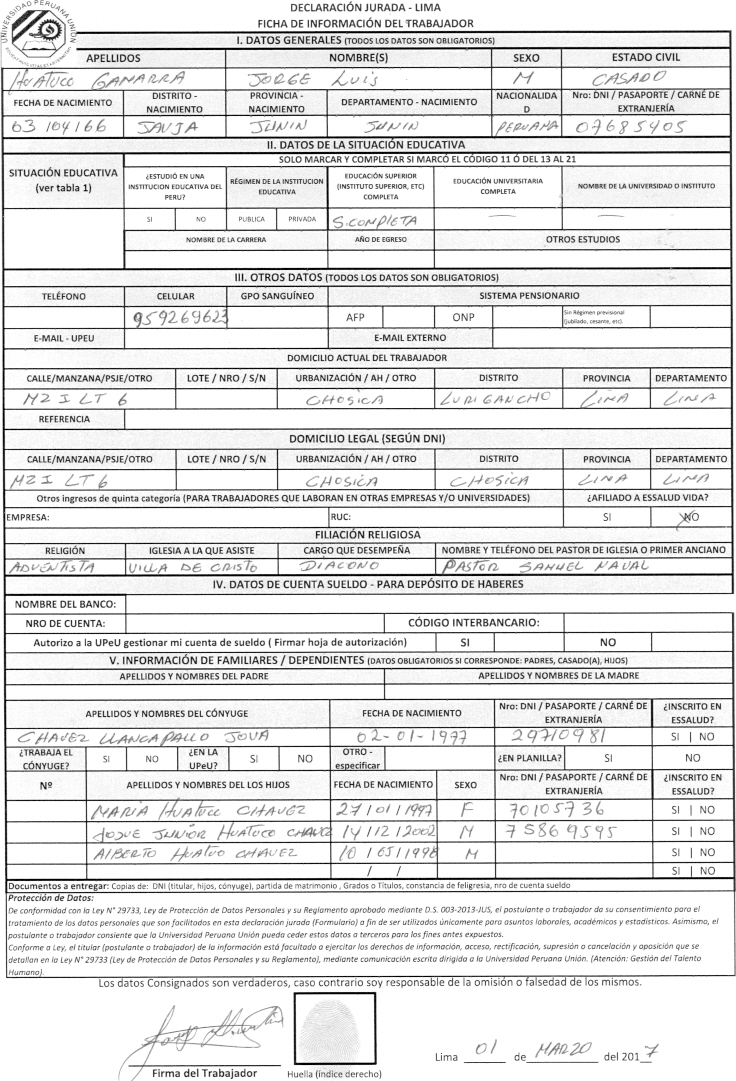 UNIVERSIDAD PERUANA UNIÓN
DECLARACIÓN JURADA - LIMA
FICHA DE INFORMACIÓN DEL TRABAJADOR
I. DATOS GENERALES (TODOS LOS DATOS SON OBLIGATORIOS)
APELLIDOS NOMBRE(S) SEXO ESTADO CIVIL
HUATUCO GAMARRA JORGE LUIS M CASADO
FECHA DE NACIMIENTO DISTRITO - NACIMIENTO PROVINCIA - NACIMIENTO DEPARTAMENTO - NACIMIENTO NACIONALIDAD Nro: DNI / PASAPORTE / CARNÉ DE EXTRANJERÍA
03 104166 JAUJA JUNIN JUNIN PERUANA 07685405
II. DATOS DE LA SITUACIÓN EDUCATIVA
SITUACIÓN EDUCATIVA (ver tabla 1) SOLO MARCAR Y COMPLETAR SI MARCÓ EL CÓDIGO 11 Ó DEL 13 AL 21
¿ESTUDIÓ EN UNA INSTITUCION EDUCATIVA DEL PERU? RÉGIMEN DE LA INSTITUCION EDUCATIVA EDUCACIÓN SUPERIOR (INSTITUTO SUPERIOR, ETC) COMPLETA EDUCACIÓN UNIVERSITARIA COMPLETA NOMBRE DE LA UNIVERSIDAD O INSTITUTO
SI NO PUBLICA PRIVADA S. COMPLETA
NOMBRE DE LA CARRERA AÑO DE EGRESO OTROS ESTUDIOS
III. OTROS DATOS (TODOS LOS DATOS SON OBLIGATORIOS)
TELÉFONO CELULAR GPO SANGUÍNEO SISTEMA PENSIONARIO
959269623 AFP ONP Sin Régimen previsional (jubilado, cesante, etc).
E-MAIL - UPEU E-MAIL EXTERNO
DOMICILIO ACTUAL DEL TRABAJADOR
CALLE/MANZANA/PSJE/OTRO LOTE / NRO / S/N URBANIZACIÓN / AH / OTRO DISTRITO PROVINCIA DEPARTAMENTO
MZ I LT 6 CHOSICA LURIGANCHO LIMA LIMA
REFERENCIA
DOMICILIO LEGAL (SEGÚN DNI)
CALLE/MANZANA/PSJE/OTRO LOTE / NRO / S/N URBANIZACIÓN / AH / OTRO DISTRITO PROVINCIA DEPARTAMENTO
MZ I LT 6 CHOSICA CHOSICA LIMA LIMA
Otros ingresos de quinta categoría (PARA TRABAJADORES QUE LABORAN EN OTRAS EMPRESAS Y/O UNIVERSIDADES) ¿AFILIADO A ESSALUD VIDA?
EMPRESA: RUC: SI NO
FILIACIÓN RELIGIOSA
RELIGIÓN IGLESIA A LA QUE ASISTE CARGO QUE DESEMPEÑA NOMBRE Y TELÉFONO DEL PASTOR DE IGLESIA O PRIMER ANCIANO
ADVENTISTA VILLA DE CRISTO DIACONO PASTOR SAMUEL NAVAL
IV. DATOS DE CUENTA SUELDO - PARA DEPÓSITO DE HABERES
NOMBRE DEL BANCO:
NRO DE CUENTA: CÓDIGO INTERBANCARIO:
Autorizo a la UPeU gestionar mi cuenta de sueldo ( Firmar hoja de autorización) SI NO
V. INFORMACIÓN DE FAMILIARES / DEPENDIENTES (DATOS OBLIGATORIOS SI CORRESPONDE: PADRES, CASADO(A), HIJOS)
APELLIDOS Y NOMBRES DEL PADRE APELLIDOS Y NOMBRES DE LA MADRE
APELLIDOS Y NOMBRES DEL CÓNYUGE FECHA DE NACIMIENTO Nro: DNI / PASAPORTE / CARNÉ DE EXTRANJERÍA ¿INSCRITO EN ESSALUD?
CHAVEZ LLANCAPALLO JOVA 02-01-1977 29710981 SI | NO
¿TRABAJA EL CÓNYUGE? SI NO ¿EN LA UPeU? SI NO OTRO - especificar ¿EN PLANILLA? SI NO
Nº APELLIDOS Y NOMBRES DE LOS HIJOS FECHA DE NACIMIENTO SEXO Nro: DNI / PASAPORTE / CARNÉ DE EXTRANJERÍA ¿INSCRITO EN ESSALUD?
MARIA HUATUCO CHAVEZ 27/01/1997 F 70105736 SI | NO
JOSUE JUNIOR HUATUCO CHAVEZ 14/12/2002 M 75869595 SI | NO
AlBERTO HUATUO CHAVEZ 10/05/1998 M SI | NO
/ / SI | NO
Documentos a entregar: Copias de: DNI (titular, hijos, cónyuge), partida de matrimonio , Grados o Títulos, constancia de feligresia, nro de cuenta sueldo
Protección de Datos:
De conformidad con la Ley N° 29733, Ley de Protección de Datos Personales y su Reglamento aprobado mediante D.S. 003-2013-JUS, el postulante o trabajador da su consentimiento para el
tratamiento de los datos personales que son facilitados en esta declaración jurada (Formulario) a fin de ser utilizados únicamente para asuntos laborales, académicos y estadísticos. Asimismo, el
postulante o trabajador consiente que la Universidad Peruana Unión pueda ceder estos datos a terceros para los fines antes expuestos.
Conforme a Ley, el titular (postulante o trabajador) de la información está facultado a ejercitar los derechos de información, acceso, rectificación, supresión o cancelación y oposición que se
detallan en la Ley N° 29733 (Ley de Protección de Datos Personales y su Reglamento), mediante comunicación escrita dirigida a la Universidad Peruana Unión. (Atención: Gestión del Talento
Humano).
Los datos Consignados son verdaderos, caso contrario soy responsable de la omisión o falsedad de los mismos.
Lima 01 de MARZO del 2017
Firma del Trabajador Huella (índice derecho)